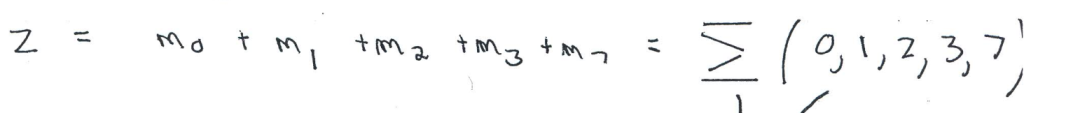 Z = m₀ + m₁ + m₂ + m₃ + m₇ = Σ(0,1,2,3,7)